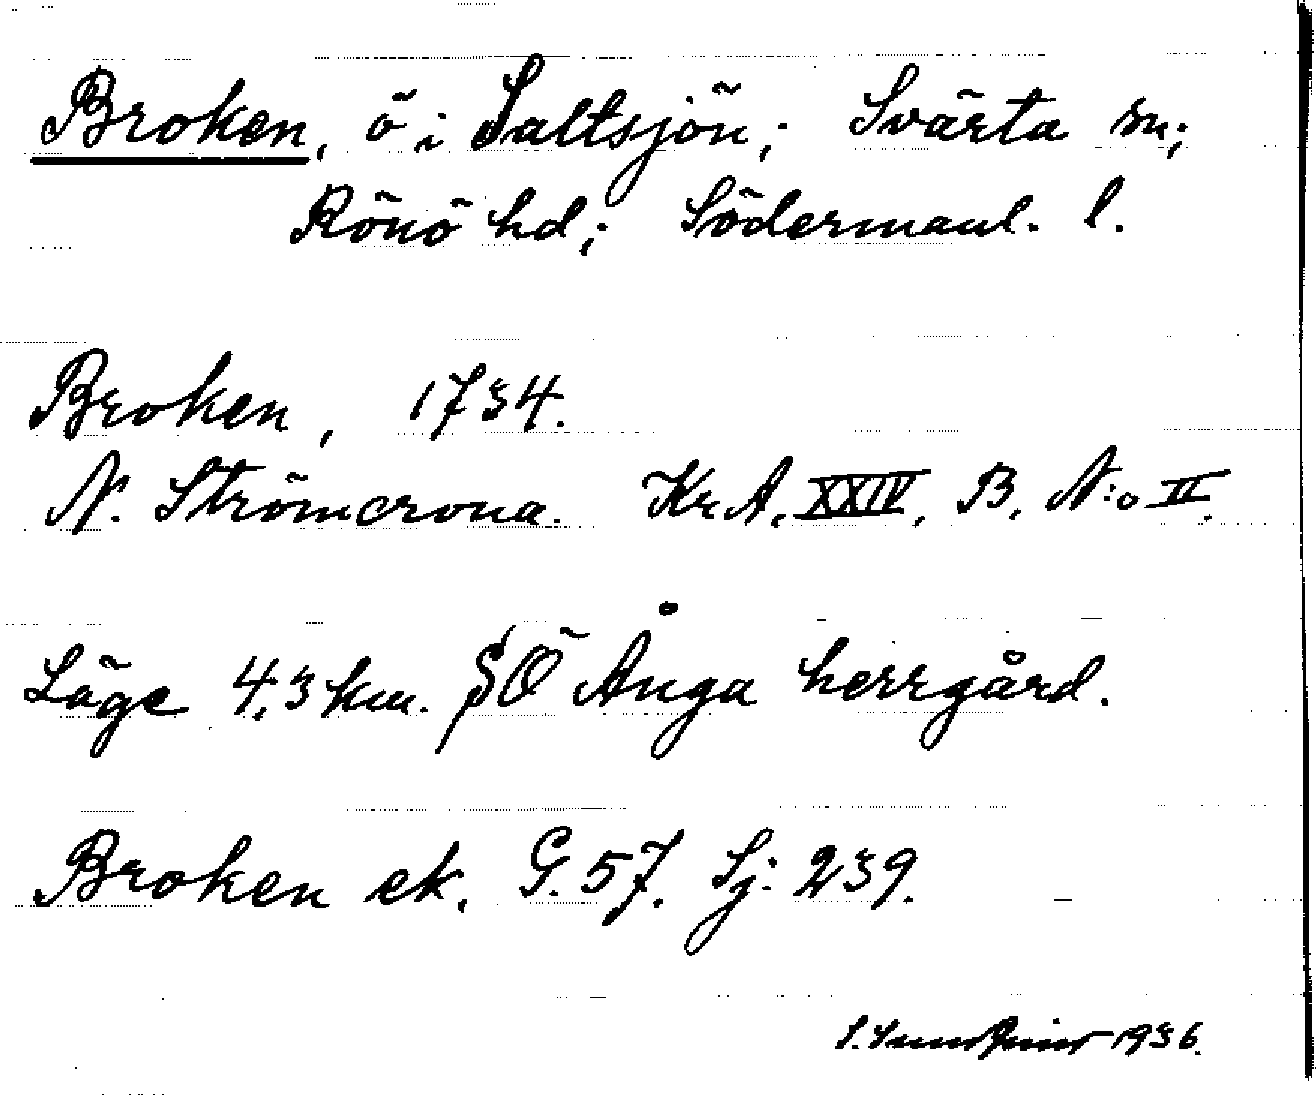 Broken, ö i Saltsjön; Svärta sn;
Rönö hd; Södermanl. l.
Broken, 1734.
N. Strömcrona. Kr.A. XXIV, B. N:o II.
Läge 4,3 km. SÖ Ånga herrgård.
Broken ek. G. 57. Sj: 239.
1936.